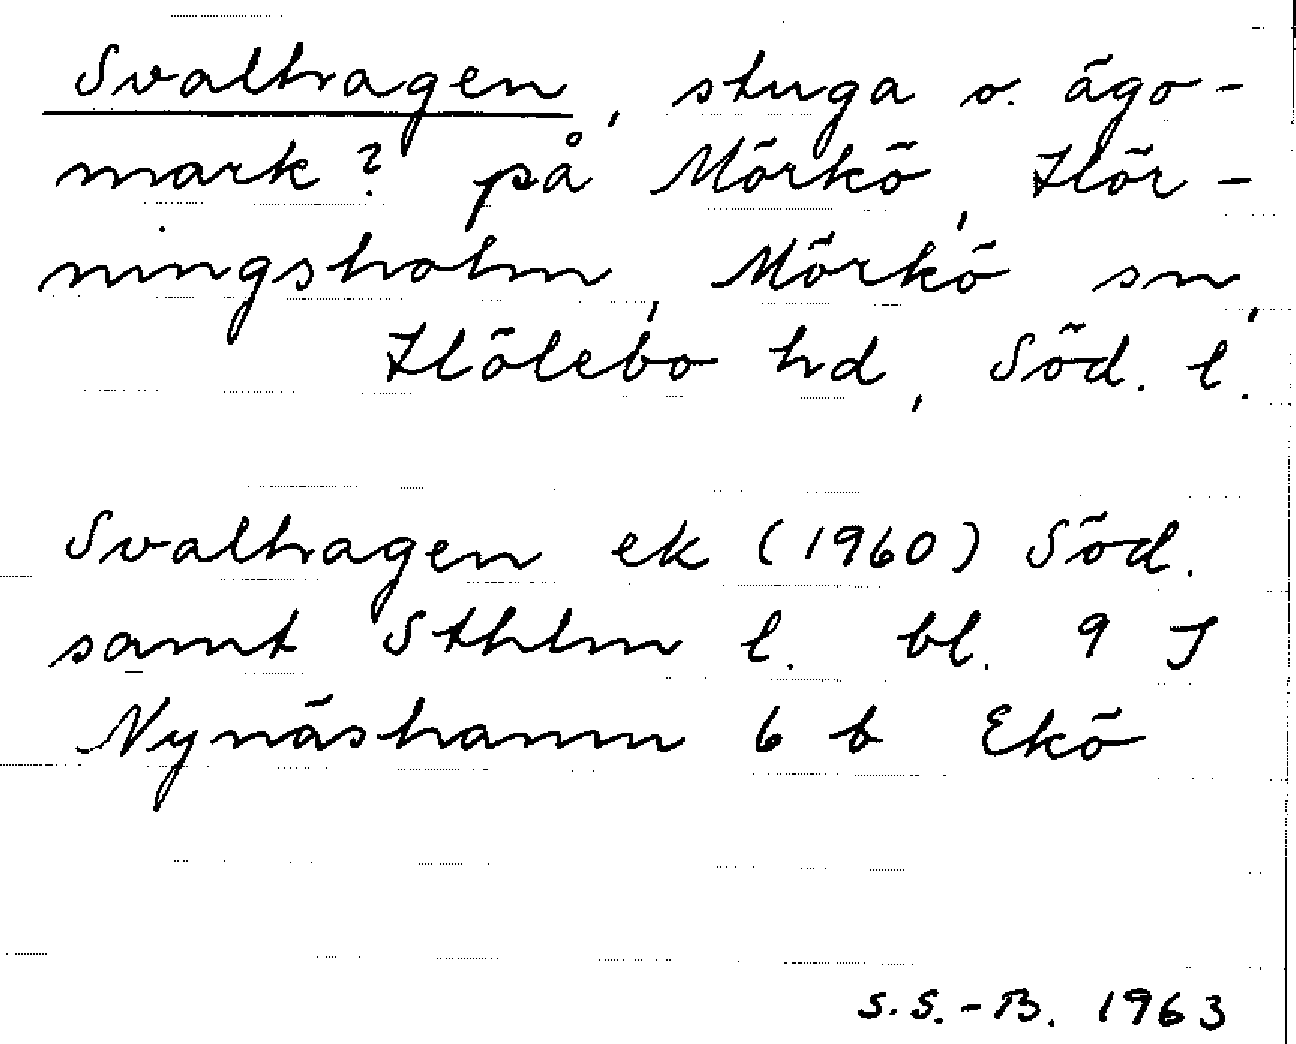 Svalhagen, stuga o. ägo-
mark? på Mörkö, Hör-
ningsholm, Mörkö sn,
Hölebo hd, Söd. l.
Svalhagen ek (1960) Söd.
samt Sthlm l. bl. 9 I
Nynäshamn 6 b Ekö
S.S.-B. 1963